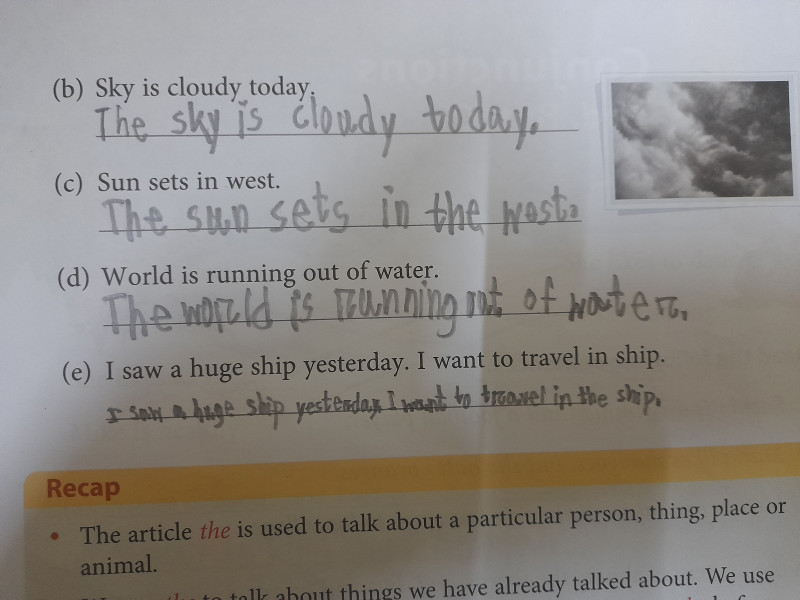 (b) Sky is cloudy today.
The sky is cloudy today.
(c) Sun sets in west.
The sun sets in the west.
(d) World is running out of water.
The world is running out of water.
(e) I saw a huge ship yesterday. I want to travel in ship.
I saw a huge ship yesterday. I want to travel in the ship.
Recap
• The article the is used to talk about a particular person, thing, place or
animal.
the to talk about things we have already talked about. We use